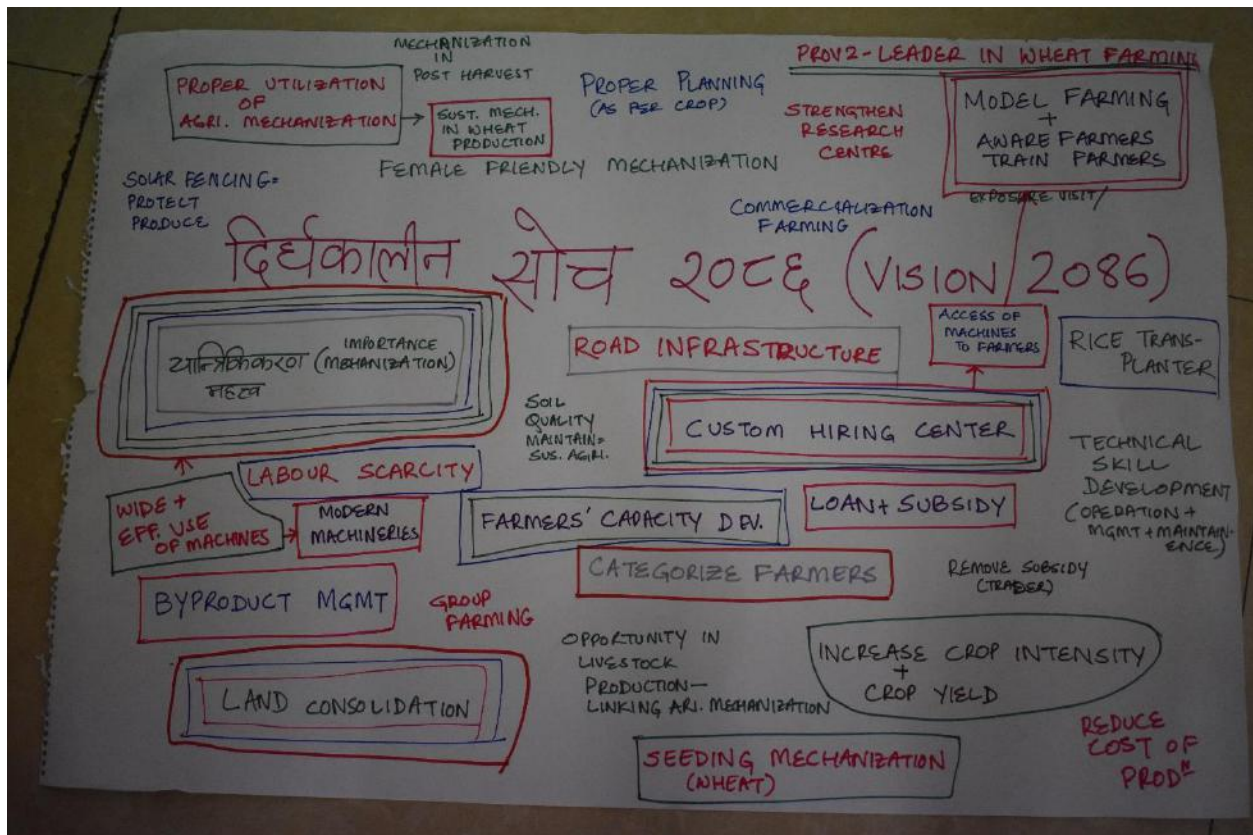 MECHANIZATION
IN
POST HARVEST
PROV2-LEADER IN WHEAT FARMING
PROPER UTILIZATION
OF
AGRI. MECHANIZATION
SUST. MECH.
IN WHEAT
PRODUCTION
PROPER PLANNING
(AS PER CROP)
STRENGTHEN
RESEARCH
CENTRE
MODEL FARMING
+
AWARE FARMERS
TRAIN FARMERS
EXPOSURE VISIT/
FEMALE FRIENDLY MECHANIZATION
SOLAR FENCING=
PROTECT
PRODUCE
COMMERCIALIZATION
FARMING
दिर्घकालीन सोच २०८६ (VISION 2086)
यान्त्रिकिकरण (MEHANIZATION)
IMPORTANCE
महत्व
ROAD INFRASTRUCTURE
ACCESS OF
MACHINES
TO FARMERS
RICE TRANS-
PLANTER
SOIL
QUALITY
MAINTAIN=
SUS. AGRI.
CUSTOM HIRING CENTER
LABOUR SCARCITY
TECHNICAL
SKILL
DEVELOPMENT
(OPERATION +
MGMT + MAINTAIN-
ENCE)
WIDE +
EFF. USE
OF MACHINES
MODERN
MACHINERIES
FARMERS' CAPACITY DEV.
LOAN+ SUBSIDY
CATEGORIZE FARMERS
REMOVE SUBSIDY
(TRADER)
BYPRODUCT MGMT
GROUP
FARMING
OPPORTUNITY IN
LIVESTOCK
PRODUCTION—
LINKING ARI. MECHANIZATION
INCREASE CROP INTENSITY
+
CROP YIELD
LAND CONSOLIDATION
SEEDING MECHANIZATION
(WHEAT)
REDUCE
COST OF
PRODᴺ